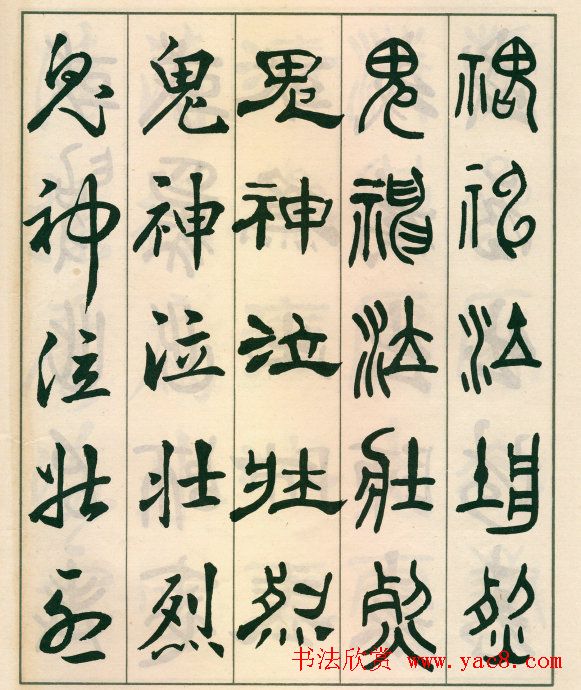 鬼神泣壯烈
鬼神泣壯烈
鬼神泣壯烈
鬼神泣壯烈
鬼神泣壯烈
书法欣赏 www.yac8.com